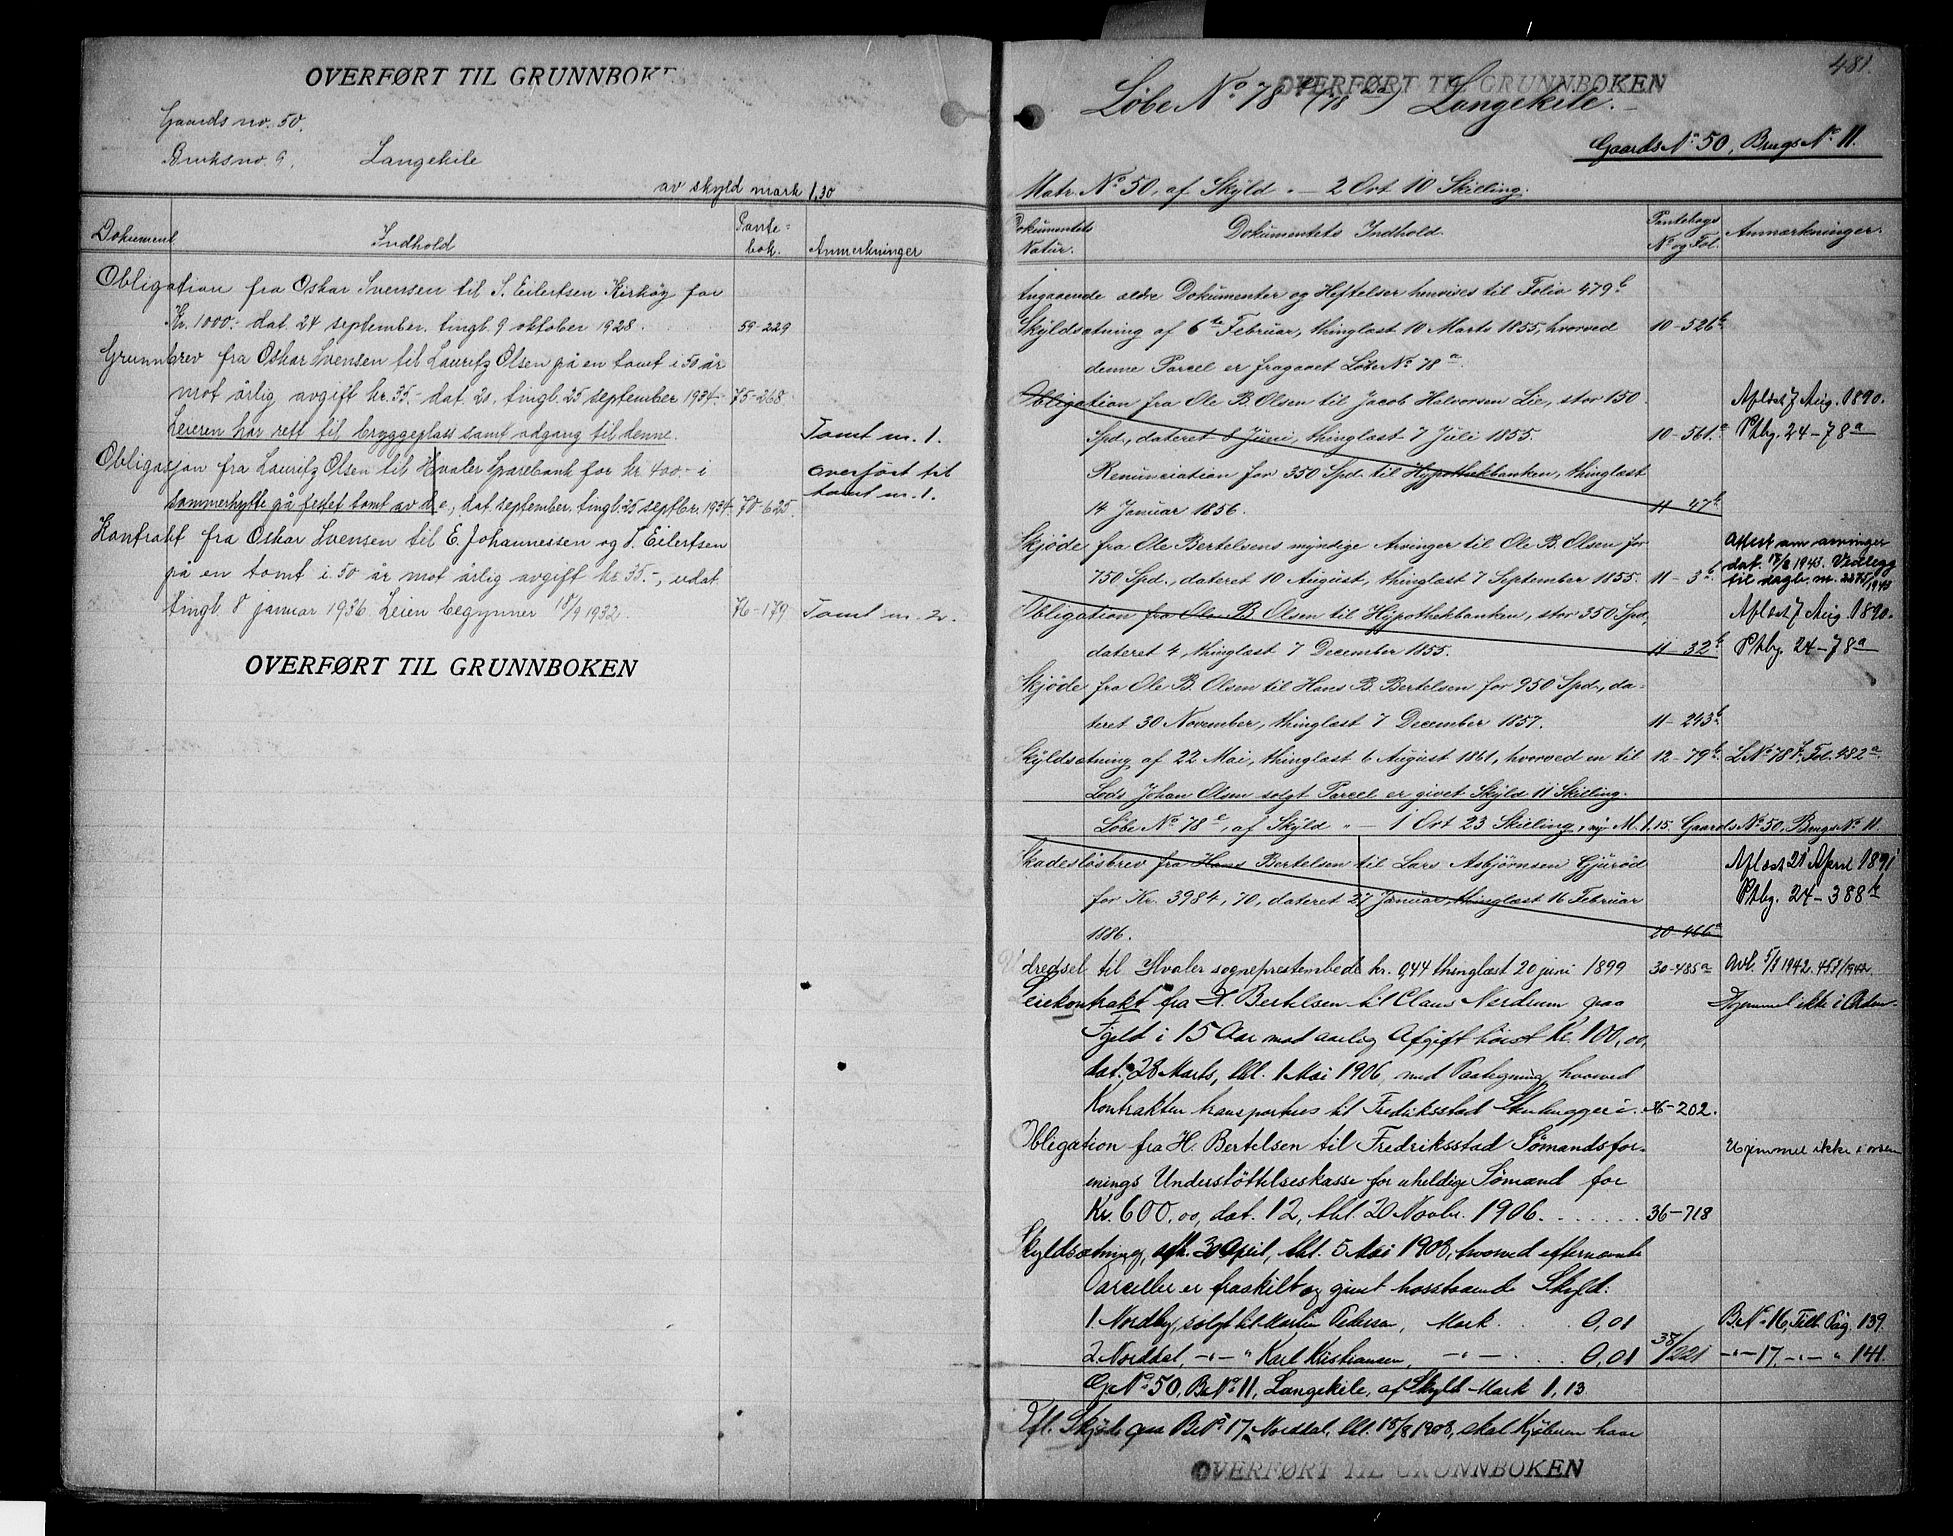 OVERFØRT TIL GRUNNBOKEN
Gaards no. 50.
Bruksno 9. Langekile
av skyld mark 1,30
Dokument Indhold Pante-
bok. Anmerkninger
Obligation fra Oskar Svensen til S. Eilertsen Kirköy for
Kr. 1000.- dat. 24 september, tingl. 9 oktober 1928. 59-229
Grunnbrev fra Oskar Svensen til Lauritz Olsen på en tomt i 50 år
mot årlig avgift kr. 35.- dat. 21, tingl. 25 september 1934. 75-268
Leieren har rett til bryggeplass samt adgang til denne. Tomt m. 1.
Obligasjon fra Lauritz Olsen til Hvaler Sparebank for kr. 400.- i overført til
sommerhytte på festet tomt av d.e., dat. september, tingl. 25 septbr. 1934. 70-625. tomt m. 1.
Kontrakt fra Oskar Svensen til E. Johannessen og T. Eilertsen
på en tomt i 50 år mot årlig avgift kr. 35.-, udat.
tingl. 8 januar 1936. Leien begynner 18/9 1932. 76-179 Tomt m. 2.
OVERFØRT TIL GRUNNBOKEN
481.
OVERFØRT TIL GRUNNBOKEN
Løbe No 78 (78) Langekile.
Gaards No 50, Brugs No 11.
Matr. No 50, af Skyld " - 2 Ort 10 Skilling.
Dokumentets
Natur. Dokumentets Indhold. Pantebogs
No og Fol. Anmærkninger.
Angaaende ældre Dokumenter og Heftelser henvises til Folio 479b
Skyldsætning af 6te Februar, thinglæst 10 Marts 1855, hvorved 10-526b
denne Parcel er fragaaet Løbe No 78a.
Obligation fra Ole B. Olsen til Jacob Halvorsen Lie, stor 150 Aflæst 7 Aug. 1890.
Spd., dateret 8 Juni, thinglæst 7 Juli 1855. 10-561.a Ptbg. 24-78a
Renunciation for 350 Spd. til Hypothekbanken, thinglæst
14 Januar 1856. 11 47b
Skjøde fra Ole Bertelsens myndige Arvinger til Ole B. Olsen for Attest om arvinger
750 Spd., dateret 10 August, thinglæst 7 September 1855. 11-3b. dat. 17/8 1943. Vedlegg
til dagb. nr. 2275/1943
Obligation fra Ole B. Olsen til Hypothekbanken, stor 350 Spd, Aflæst 7 Aug. 1890.
dateret 4, thinglæst 7 December 1855. 11 32b Ptbg. 24-78a
Skjøde fra Ole B. Olsen til Hans B. Bertelsen for 950 Spd., da-
teret 30 November, thinglæst 7 December 1857. 11-243b.
Skyldsætning af 22 Mai, thinglæst 6 August 1861, hvorved en til 12-79b. L No 78f. Fol. 482a.
Lods Johan Olsen solgt Parcel er givet Skyld 11 Skilling.
Løbe No 78e, af Skyld " - 1 Ort 23 Skilling, ny M. 1,15 Gaards No 50, Brugs No 11.
Skadesløsbrev fra Hans Bertelsen til Lars Asbjørnsen Gjurød Aflæst 21 April 1891
for Kr. 3984,70, dateret 27 Januar, thinglæst 16 Februar Ptbg. 24-388b
1886. 20-466a
Udredsel til Hvaler sogneprestembede kr. 0,44 thinglæst 20 juni 1899 30-485a Avl. 5/1 1942. 457/1942.
Leiekontrakt fra H. Bertelsen til Claus Nerdrum paa Hjemmel ikke i Orden.
Fjeld i 15 Aar mod aarlig Afgift høist Kr. 100,00,
dat. 28 Marts, thl. 1 Mai 1906, med Paategning hvorved
Kontrakten transporteres til Fredriksstad Stenhuggeri. 36-202.
Obligation fra H. Bertelsen til Fredriksstad Sømandsfor- Hjemmel ikke i orden
enings Understøttelseskasse for uheldige Sømænd for
Kr. 600,00, dat. 12, thl. 20 Novbr. 1906. 36-718
Skyldsætning, afh. 30 April, thl. 5 Mai 1908, hvorved efternævnte
Parceller er fraskilt og givet hosstaaende Skyld:
1 Nordby, solgt til Martin Pedersen, Mark 0,01 B. No 16, Till. Pag. 139.
2 Norddal, -"- " Karl Kristiansen, -"- 0,01 38/221 -"- 17, -"- " 141.
G. No 50, B. No 11, Langekile, af Skyld Mark 1,13
Ifl. Skjøde paa B. No 17, Norddal, thl. 15/8 1908, skal Kjøberen have
OVERFØRT TIL GRUNNBOKEN